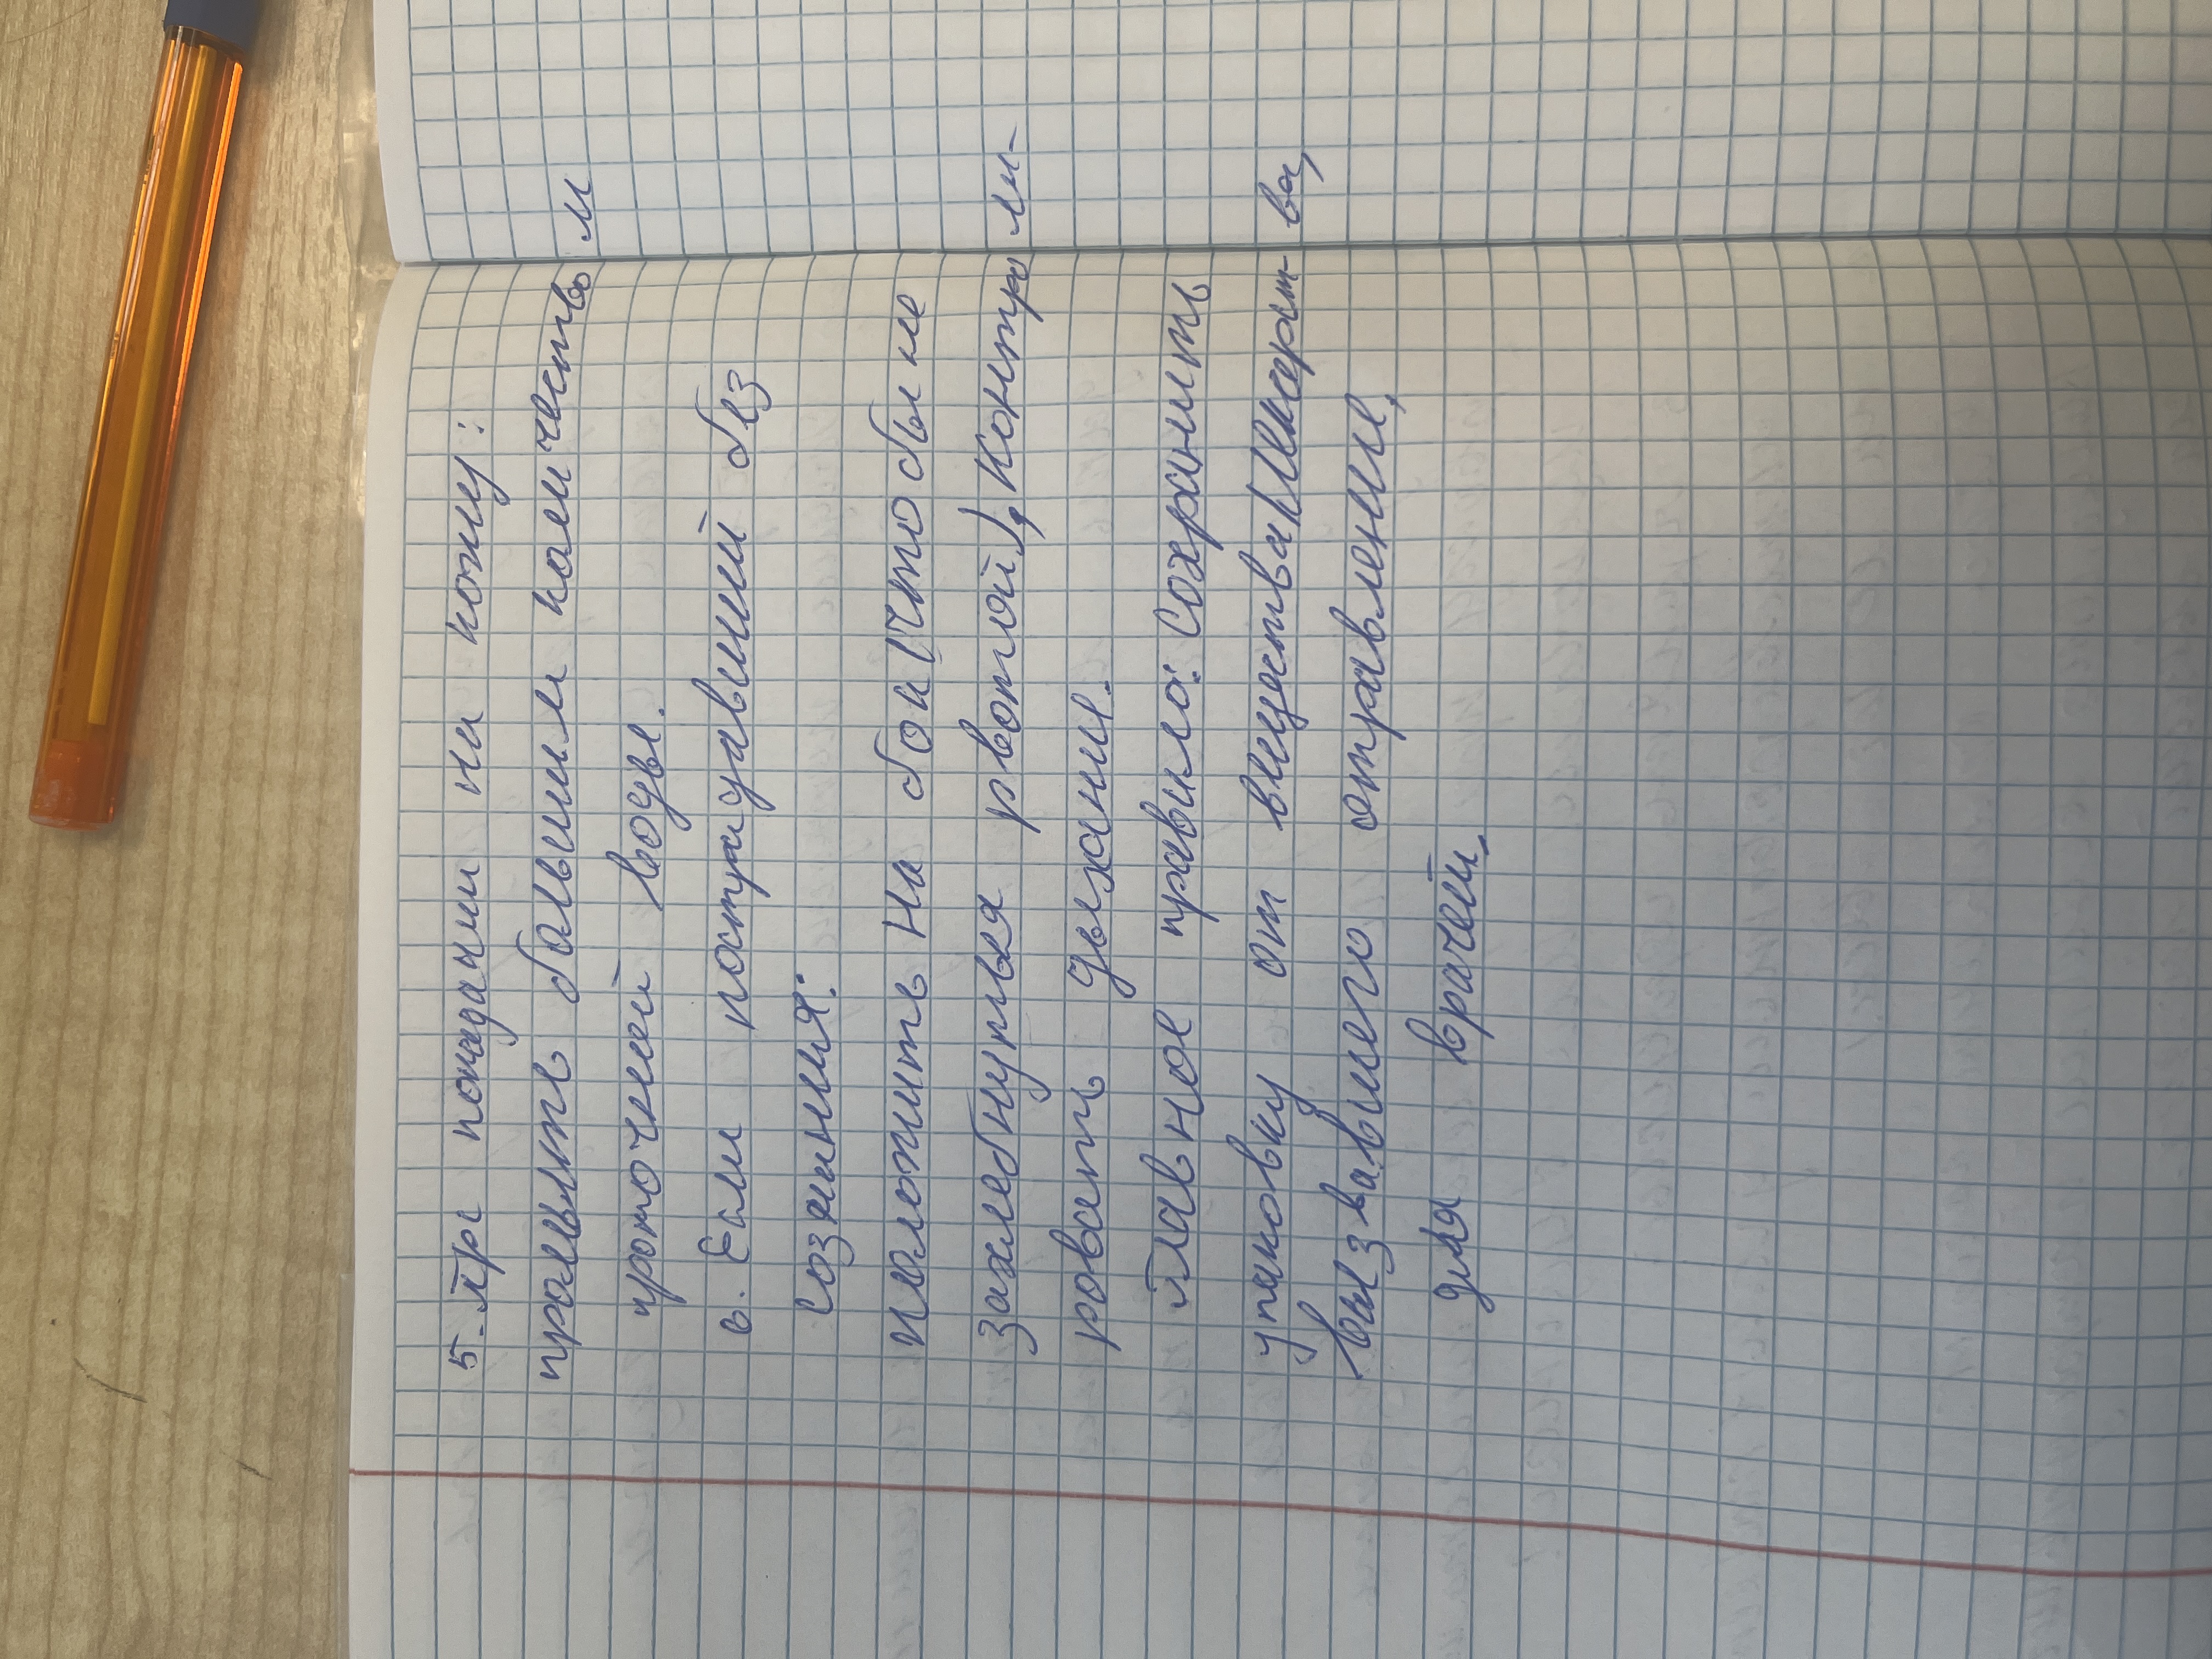 5. При попадании на кожу:
промыть большим количеством
проточной воды.
6. Если пострадавший без
сознания:
положить на бок (что бы не
захлебнулся рвотой), контроли-
ровать дыхание.
Главное правило: Сохранить
упаковку от вещества/лекарст-ва,
вызвавшего отравление,
для врачей.